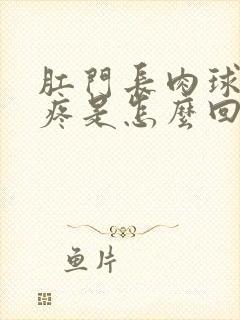 肛門長肉球
疼是怎麼回
鱼片